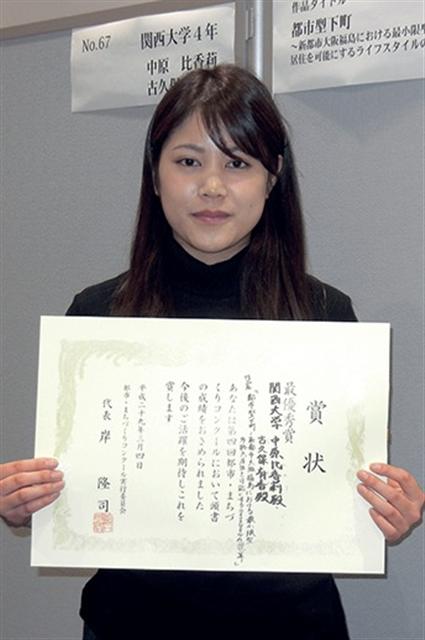 No.67
関西大学4年
中原 比香莉
古久保
作品タイトル
都市型下町
～新都市大阪福島における最小限
居住を可能にするライフスタイルの
賞状
最優秀賞
関西大学 中原比香莉殿
古久保有香殿
あなたは第四回都市・まちづ
くりコンクールにおいて頭書
の成績をおさめられました
今後のご活躍を期待しこれを
賞します
平成二十九年三月四日
都市・まちづくりコンクール実行委員会
代表 岸 隆司